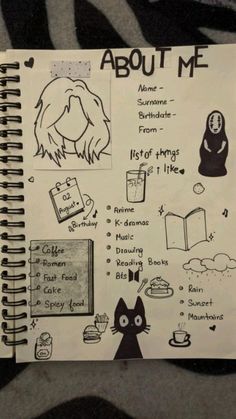 ABOUT ME
Name -
Surname -
Birthdate -
From -
list of things
i like
02
August
Birthday
Anime
K-dramas
Music
Drawing
Reading Books
Coffee
Ramen
Fast Food
Cake
Spicy food
Rain
Sunset
Mountains